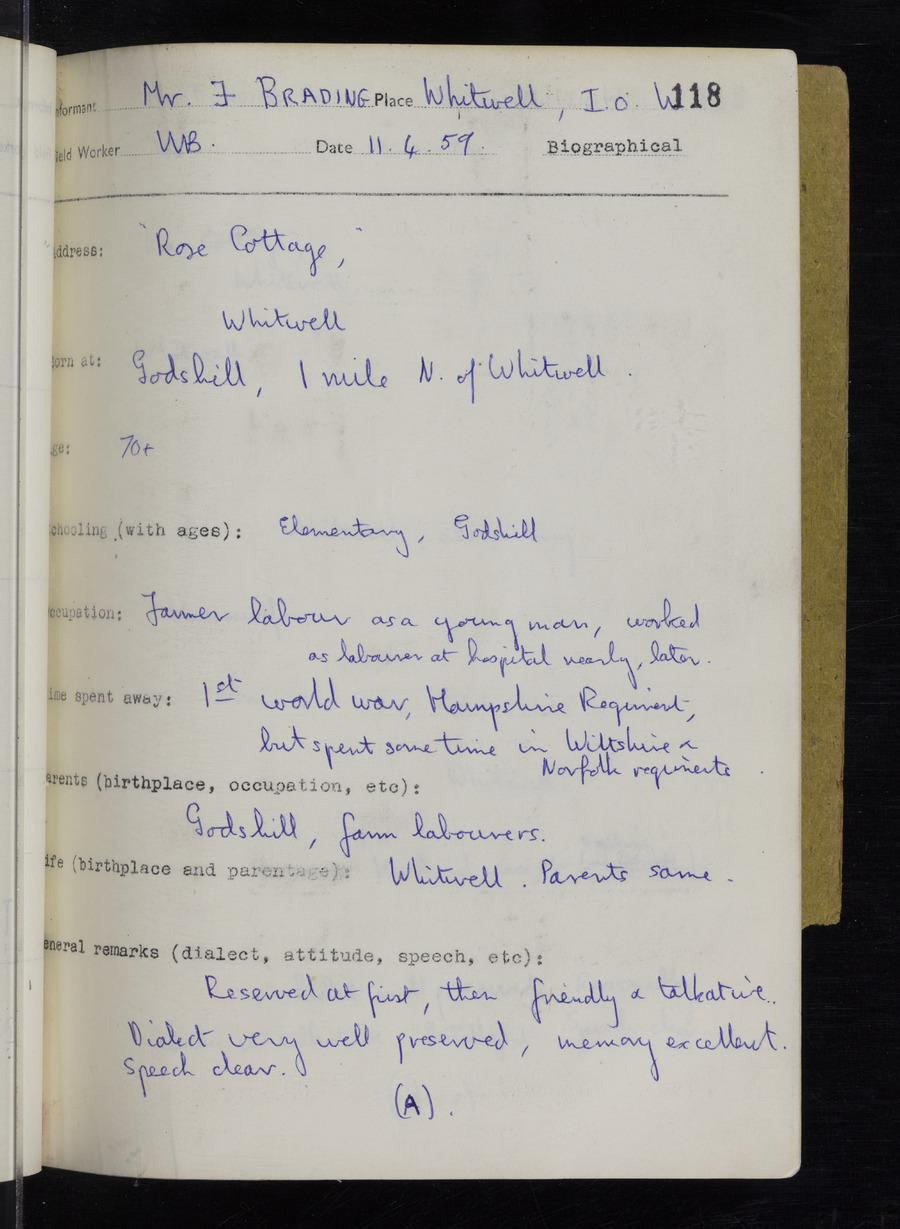 nformant Mr. F BRADING Place Whitwell, I.O. W 118
ield Worker WB. Date 11.4.59. Biographical
ddress: "Rose Cottage,"
Whitwell
orn at: Godshill, 1 mile N. of Whitwell.
ge: 70+
chooling (with ages): Elementary, Godshill
ccupation: Farmer labour as a young man, worked
as labourer at hospital nearly, later.
ime spent away: 1st world war, Hampshire Regiment,
but spent some time in Wiltshire &
Norfolk regiments.
arents (birthplace, occupation, etc):
Godshill, farm labourers.
ife (birthplace and parentage): Whitwell. Parents same.
eneral remarks (dialect, attitude, speech, etc):
Reserved at first, then friendly & talkative..
Dialect very well preserved, memory excellent.
Speech clear.
(A).